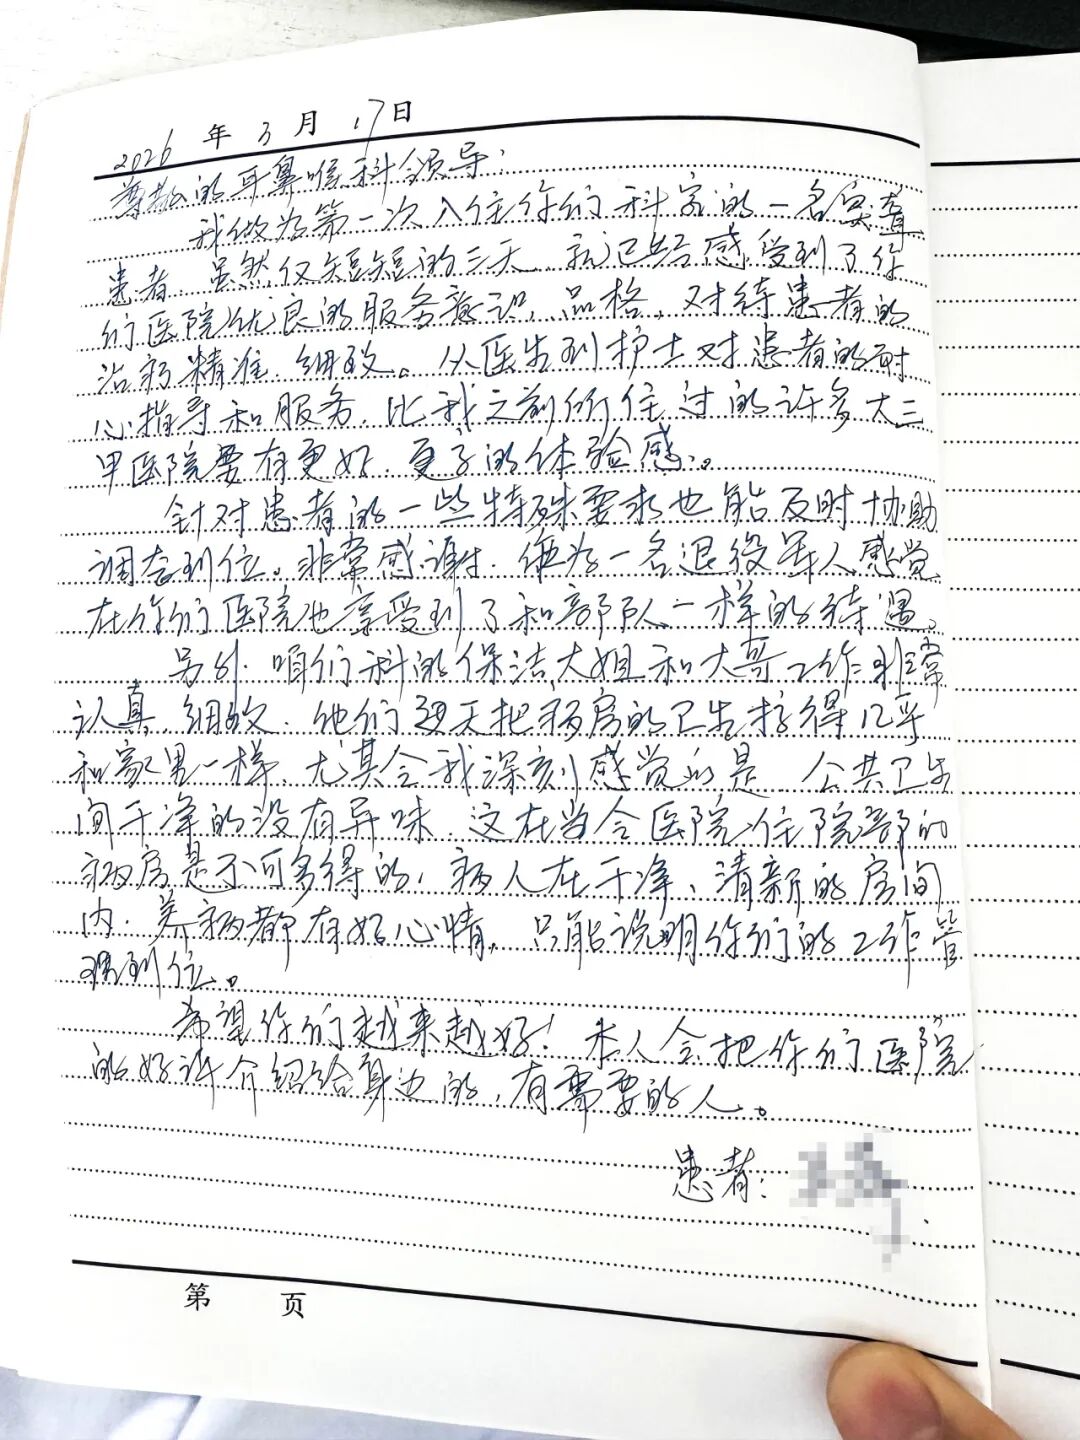 2026年3月17日
尊敬的耳鼻喉科领导：
我做为第一次入住你们科室的一名突聋
患者，虽然仅短短的三天，就已经感受到了你
们医院优良的服务意识，品格，对待患者的
治病精准，细致。从医生到护士对患者的耐
心指导和服务，比我之前所住过的许多大三
甲医院要有更好，更多的体验感。
针对患者的一些特殊要求也能及时协助
调查到位。非常感谢，做为一名退役军人感觉
在你们医院也享受到了和部队一样的待遇。
另外，咱们科的保洁大姐和大哥工作非常
认真，细致，他们每天把病房的卫生搞得几乎
和家里一样，尤其令我深刻感觉的是，公共卫生
间干净的没有异味，这在当今医院住院部的
病房是不可多得的，病人在干净、清新的房间
内，养病都有好心情，只能说明你们的工作管
理到位。
希望你们越来越好！本人会把你们医院
的好评介绍给身边的，有需要的人。
患者：
第 页